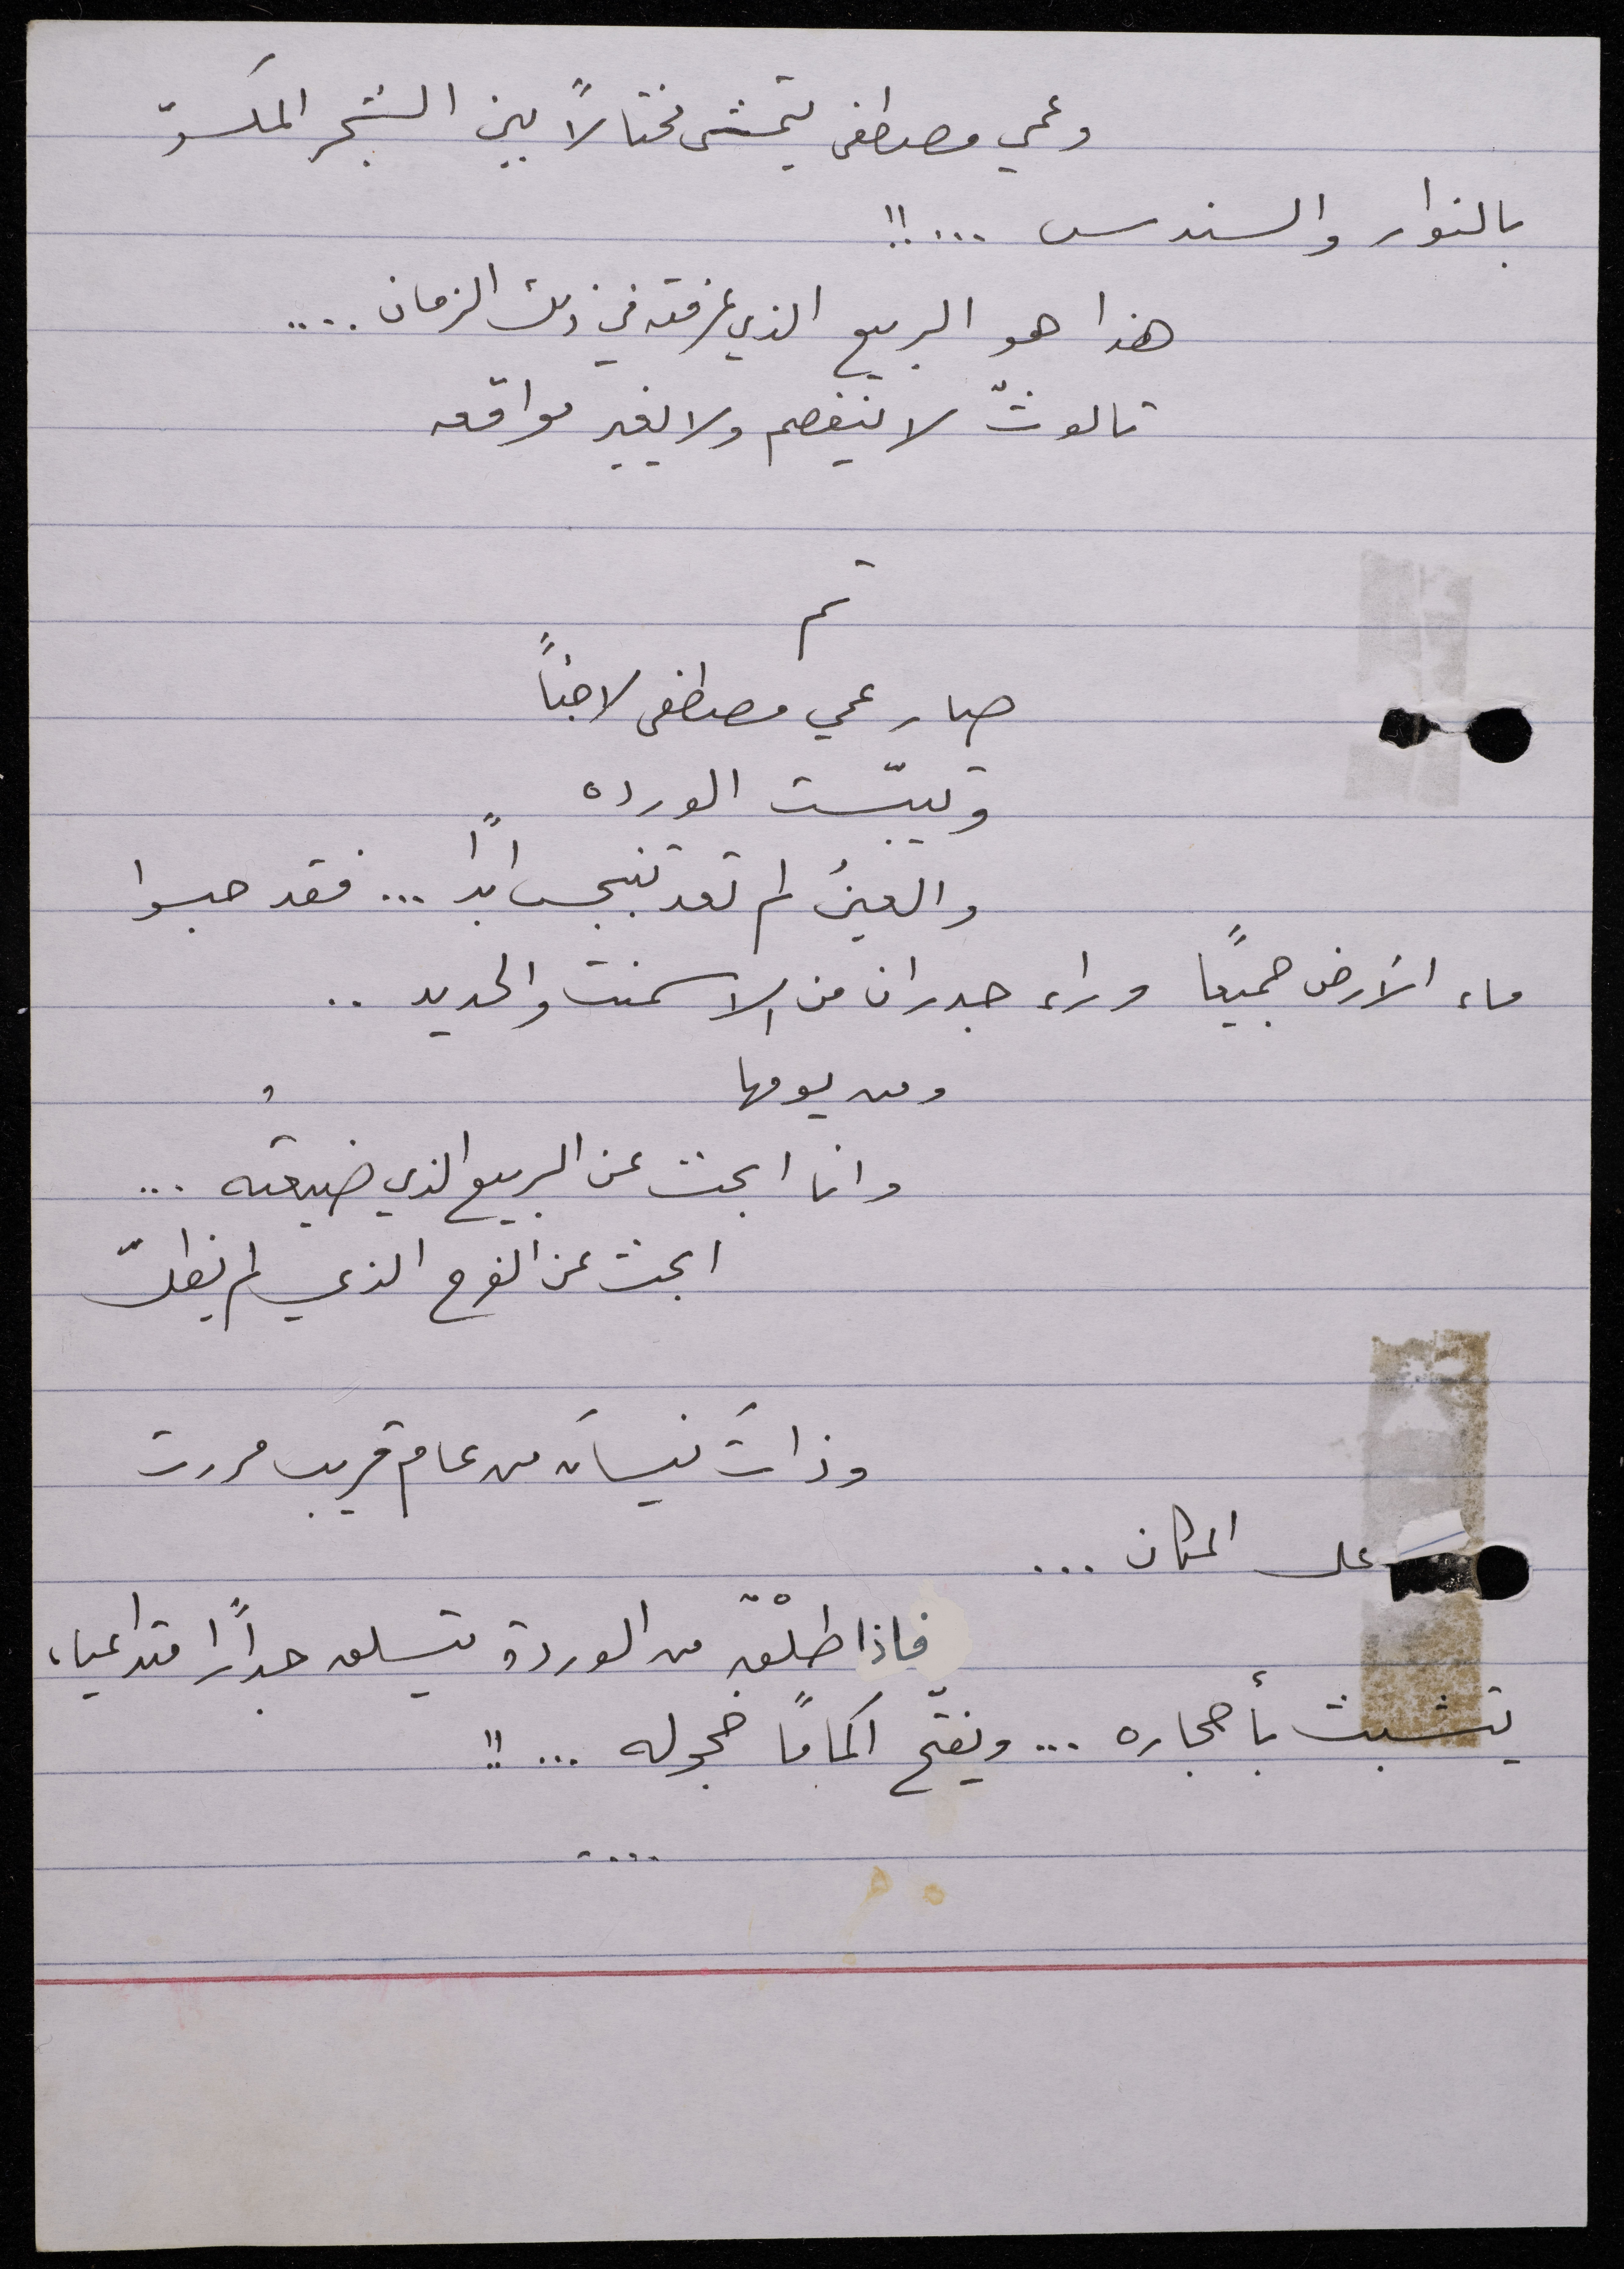 وعمي مصطفى يتمشى مختالاً بين الشجر المكسوّ
بالنوار والسندس ...!!
هذا هو الربيع الذي عرفته في ذلك الزمان ....
ثالوثٌ لا ينفصم ولا يغير مواقعه
ثم
صار عمي مصطفى لاجئاً
وتيبّست الورده
والعينُ لم تعد تنبجس ابداً ... فقد حبسوا
ماء الأرض جميعًا وراء جدران من الاسمنت والحديد ..
ومن يومها
وانا ابحث عن الربيع الذي ضيعته ...
ابحث عن الفرح الذي لم يطلّ
وذاتَ نيسانَ من عام قريب مررت
على المكان ...
فاذا طلْقٌ من الوردة يتسلق جدارًا متداعيا،
يتشبث بأحجاره ... ويفتّح اكمامًا خجوله ... !!
....